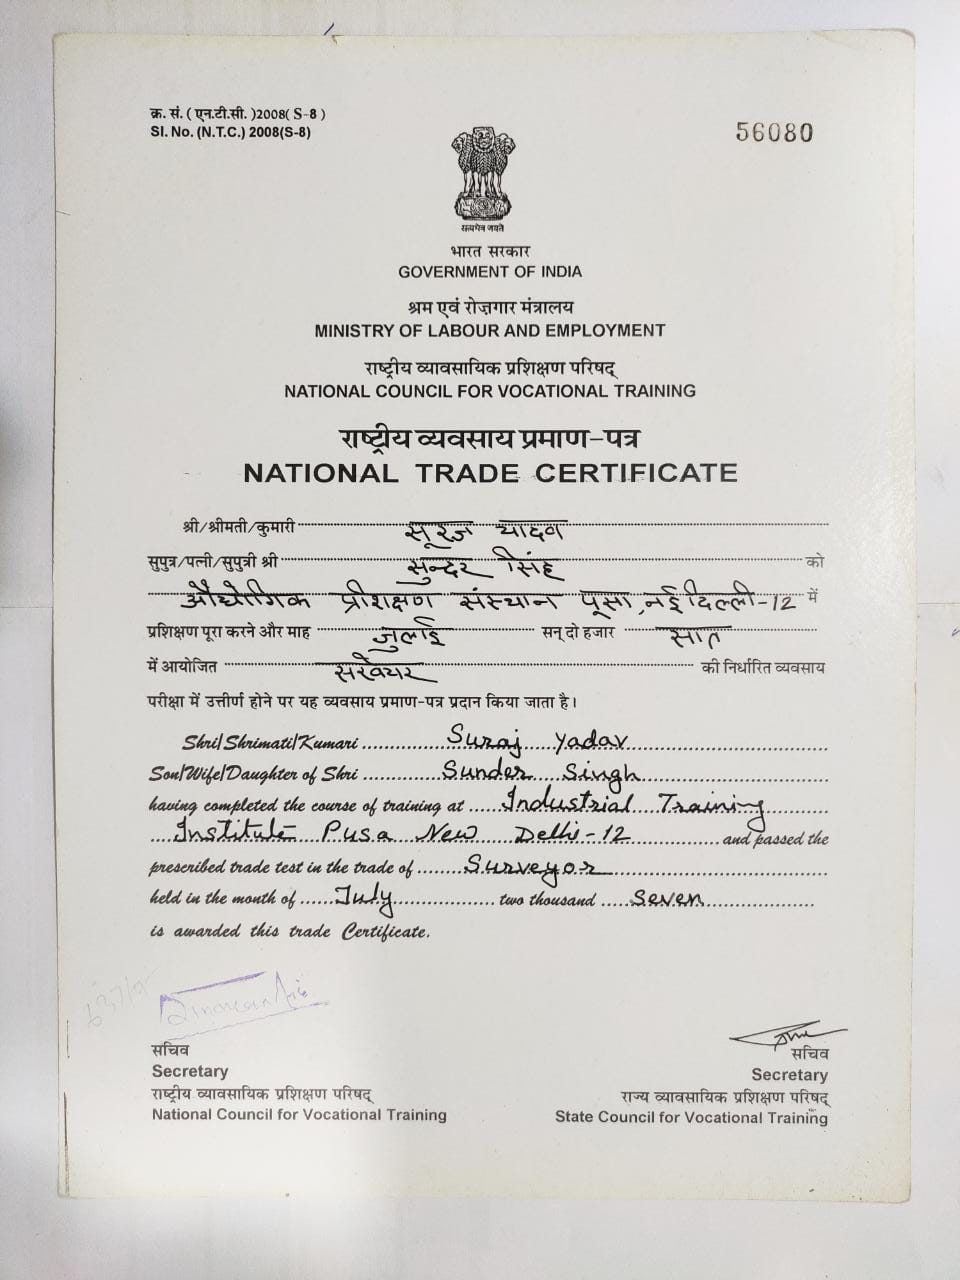 क्र. सं. ( एन.टी.सी. )2008( S-8 )
Sl. No. (N.T.C.) 2008(S-8)
56080
सत्यमेव जयते
भारत सरकार
GOVERNMENT OF INDIA
श्रम एवं रोज़गार मंत्रालय
MINISTRY OF LABOUR AND EMPLOYMENT
राष्ट्रीय व्यावसायिक प्रशिक्षण परिषद्
NATIONAL COUNCIL FOR VOCATIONAL TRAINING
राष्ट्रीय व्यवसाय प्रमाण-पत्र
NATIONAL TRADE CERTIFICATE
श्री/श्रीमती/कुमारी सूरज यादव
सुपुत्र/पत्नी/सुपुत्री श्री सुन्दर सिंह को
औद्योगिक प्रशिक्षण संस्थान पूसा, नई दिल्ली-12 में
प्रशिक्षण पूरा करने और माह जुलाई सन् दो हजार सात
में आयोजित सर्वेयर की निर्धारित व्यवसाय
परीक्षा में उत्तीर्ण होने पर यह व्यवसाय प्रमाण-पत्र प्रदान किया जाता है।
Shri/Shrimati/Kumari Suraj Yadav
Son/Wife/Daughter of Shri Sunder Singh
having completed the course of training at Industrial Training
Institute Pusa New Delhi-12 and passed the
prescribed trade test in the trade of Surveyor
held in the month of July two thousand Seven
is awarded this trade Certificate.
सचिव
Secretary
राष्ट्रीय व्यावसायिक प्रशिक्षण परिषद्
National Council for Vocational Training
सचिव
Secretary
राज्य व्यावसायिक प्रशिक्षण परिषद्
State Council for Vocational Training